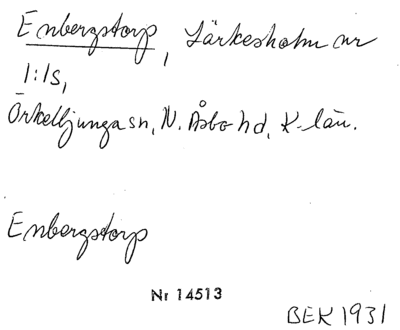 Enbergstorp, Lärkesholm nr
1:15,
Örkelljunga sn, N. Åsbo hd, K-län.
Enbergstorp
Nr 14513
BEK 1931